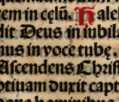 tem in celū. Hale
dit Deus in iubila
nus in voce tubę
Ascendens Christ
ptiuam duxit capt